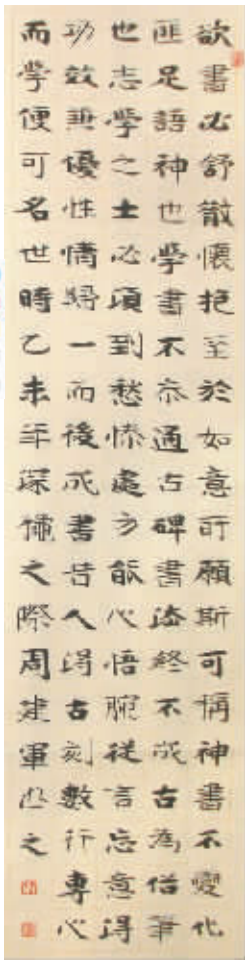 欲書必舒散懷抱至於如意所願斯可稱神書不變化
匪足語神也學書不參通古碑書法終不成古為俗筆
也志學之士必須到愁慘處方能心悟腕從言忘意得
功效兼優性情歸一而後成書昔人得古刻數行專心
而學便可名世時乙未年深之際周建軍之